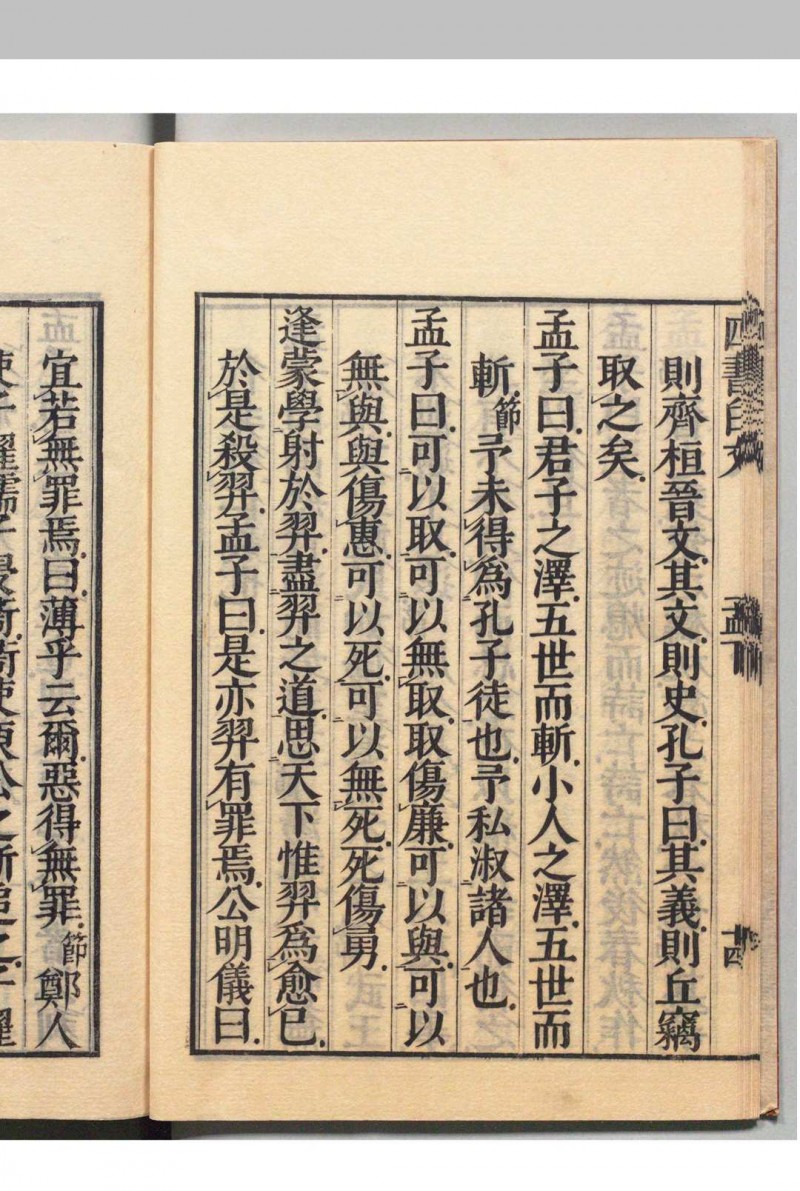 則齊桓晉文其文則史孔子曰其義則丘竊
取之矣
孟子曰君子之澤五世而斬小人之澤五世而
斬節予未得爲孔子徒也予私淑諸人也
孟子曰可以取可以無取取傷廉可以與可以
無與與傷惠可以死可以無死死傷勇
逄蒙學射於羿盡羿之道思天下惟羿爲愈己
於是殺羿孟子曰是亦羿有罪焉公明儀曰
宜若無罪焉曰薄乎云爾惡得無罪節鄭人